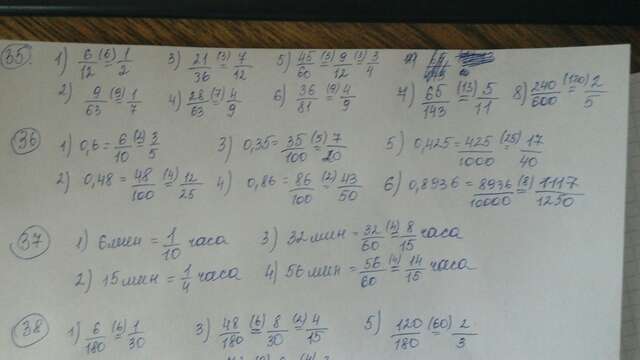 35. 1) 6/12 (6)= 1/2 3) 21/36 (3)= 7/12 5) 45/60 (5)= 9/12 (3)= 3/4
2) 9/63 (9)= 1/7 4) 28/63 (7)= 4/9 6) 36/81 (9)= 4/9 7) 65/143 (13)= 5/11 8) 240/600 (120)= 2/5
36 1) 0,6 = 6/10 (2)= 3/5 3) 0,35 = 35/100 (5)= 7/20 5) 0,425 = 425/1000 (25)= 17/40
2) 0,48 = 48/100 (4)= 12/25 4) 0,86 = 86/100 (2)= 43/50 6) 0,8936 = 8936/10000 (8)= 1117/1250
37 1) 6 мин = 1/10 часа 3) 32 мин = 32/60 (4)= 8/15 часа
2) 15 мин = 1/4 часа 4) 56 мин = 56/60 (4)= 14/15 часа
38 1) 6/180 (6)= 1/30 3) 48/180 (6)= 8/30 (2)= 4/15 5) 120/180 (60)= 2/3